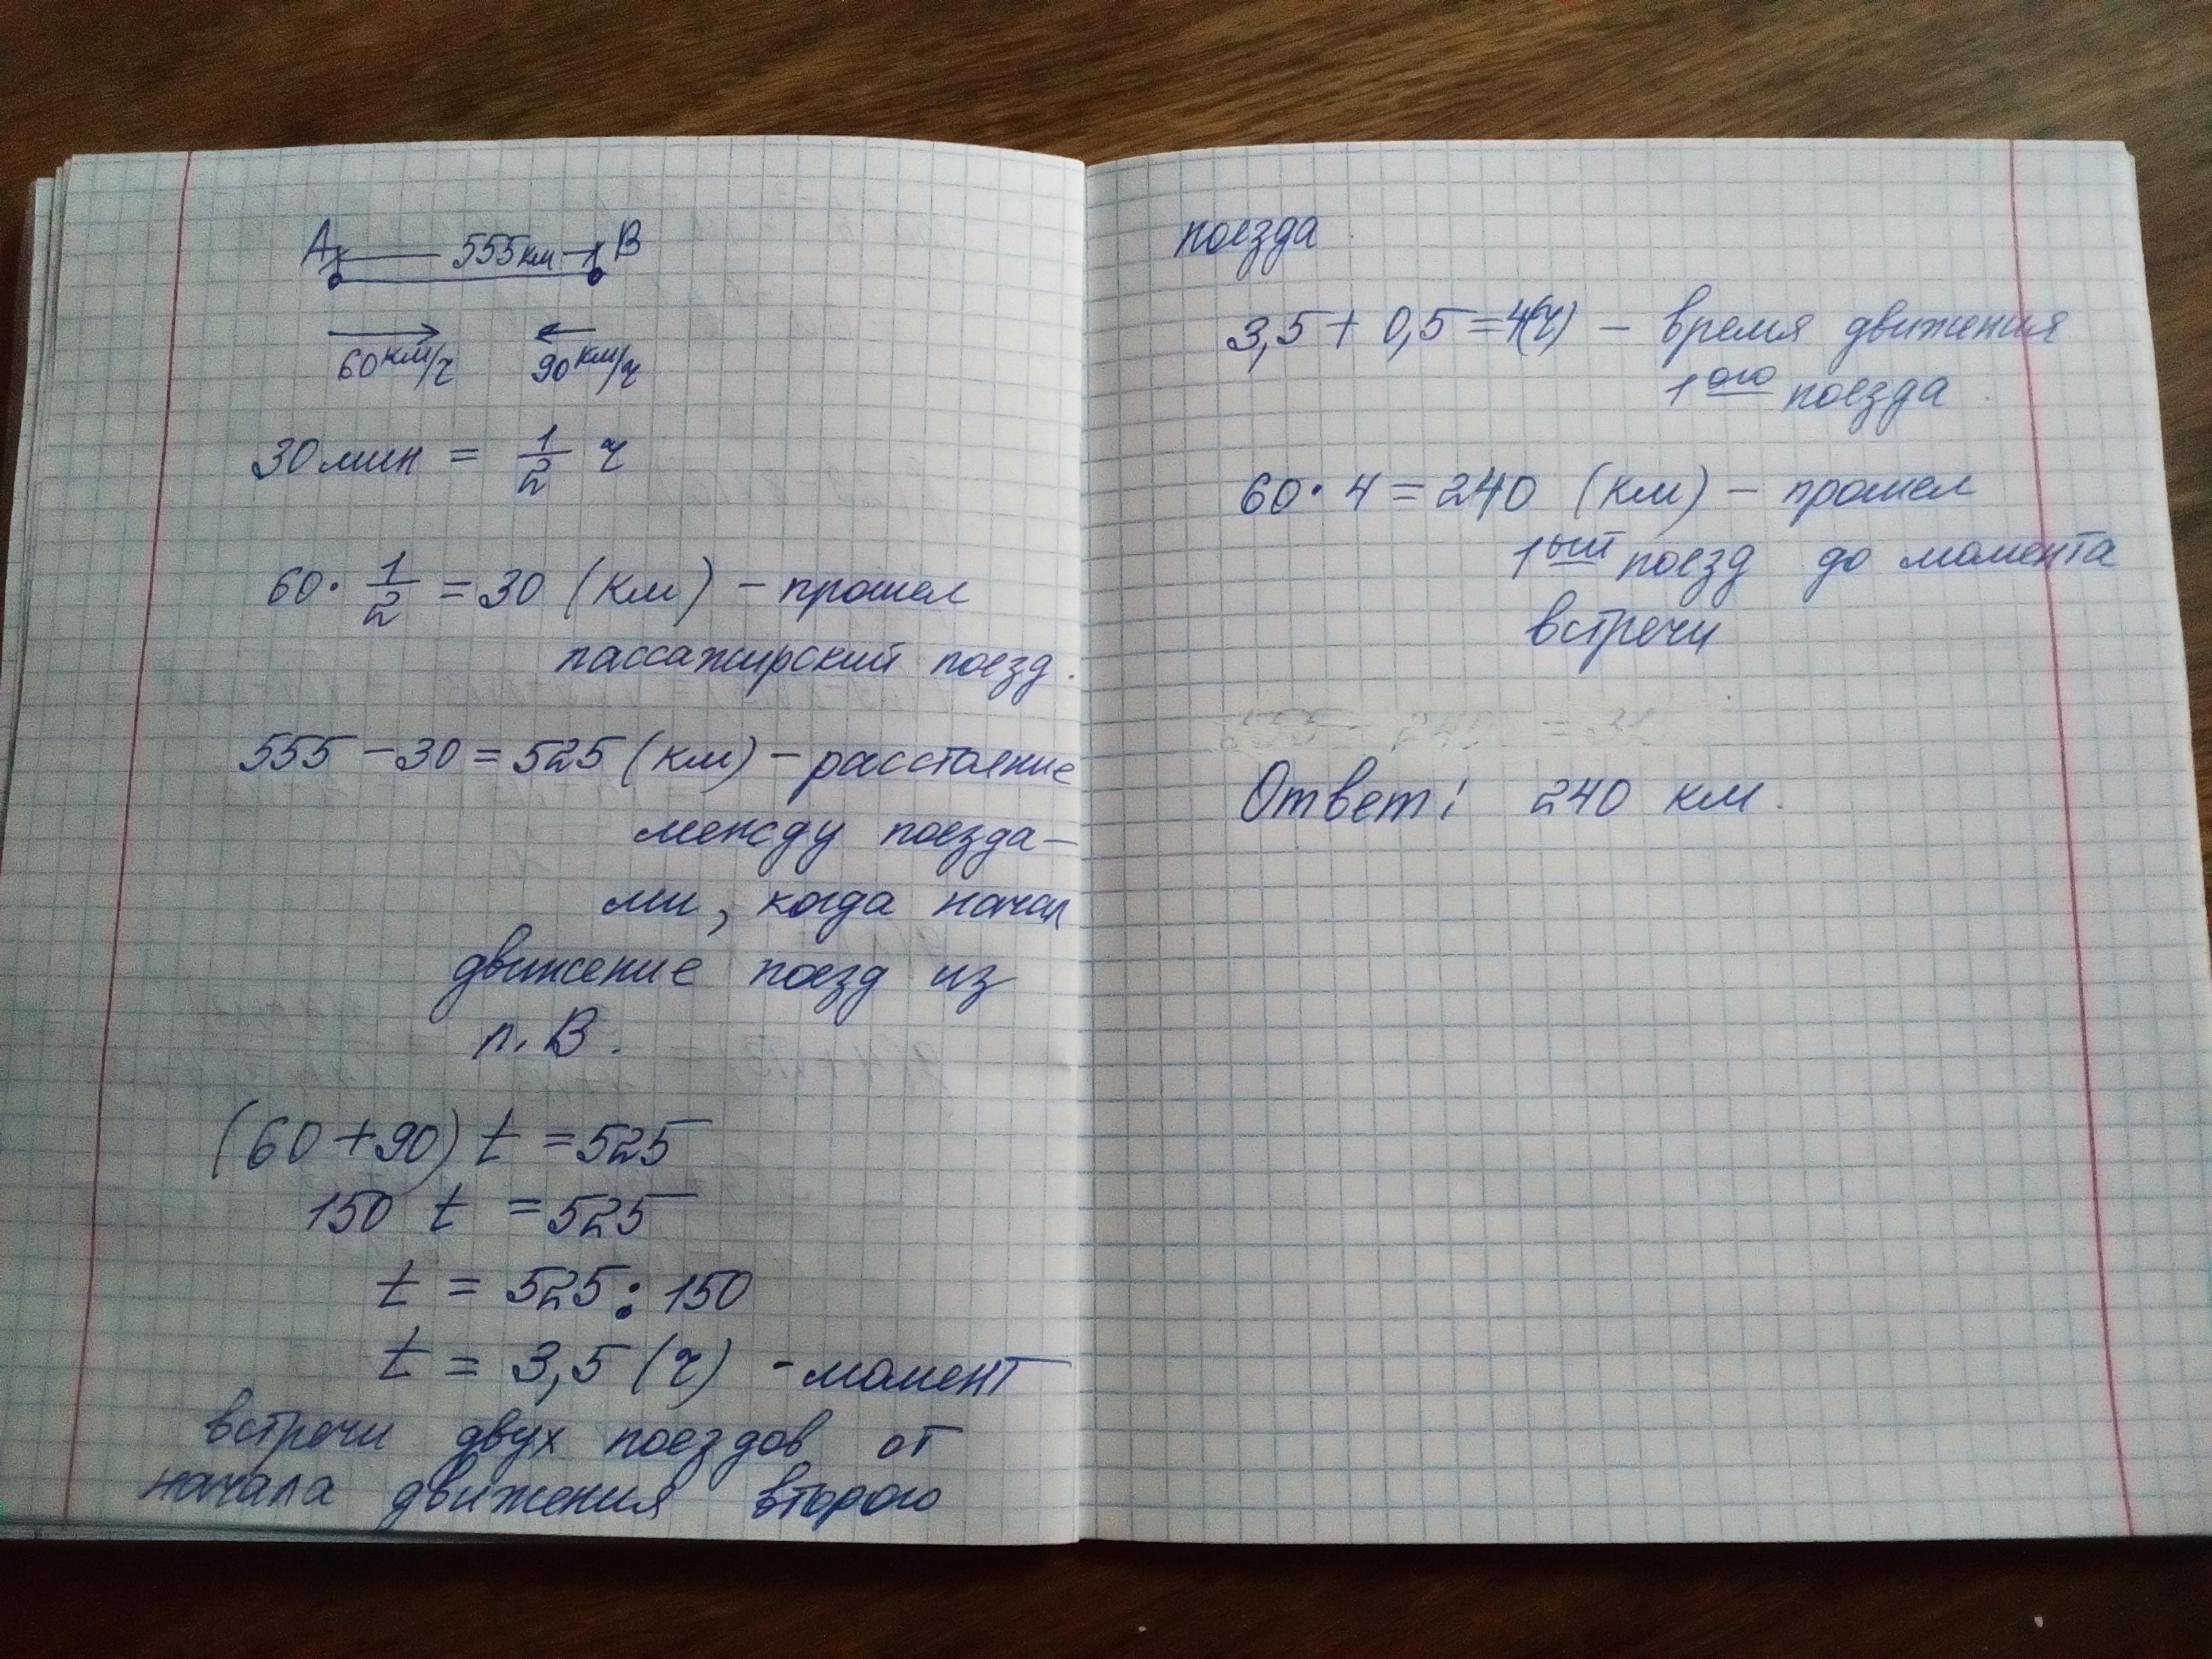 A 555 км B
60 км/ч 90 км/ч
30 мин = 1/2 ч
60 · 1/2 = 30 (км) – прошел
пассажирский поезд.
555 – 30 = 525 (км) – расстояние
между поезда–
ми, когда начал
движение поезд из
п. В.
(60 + 90) t = 525
150 t = 525
t = 525 : 150
t = 3,5 (ч) - момент
встречи двух поездов от
начала движения второго
поезда.
3,5 + 0,5 = 4(ч) – время движения
1ого поезда.
60 · 4 = 240 (км) – прошел
1ый поезд до момента
встречи
Ответ: 240 км.